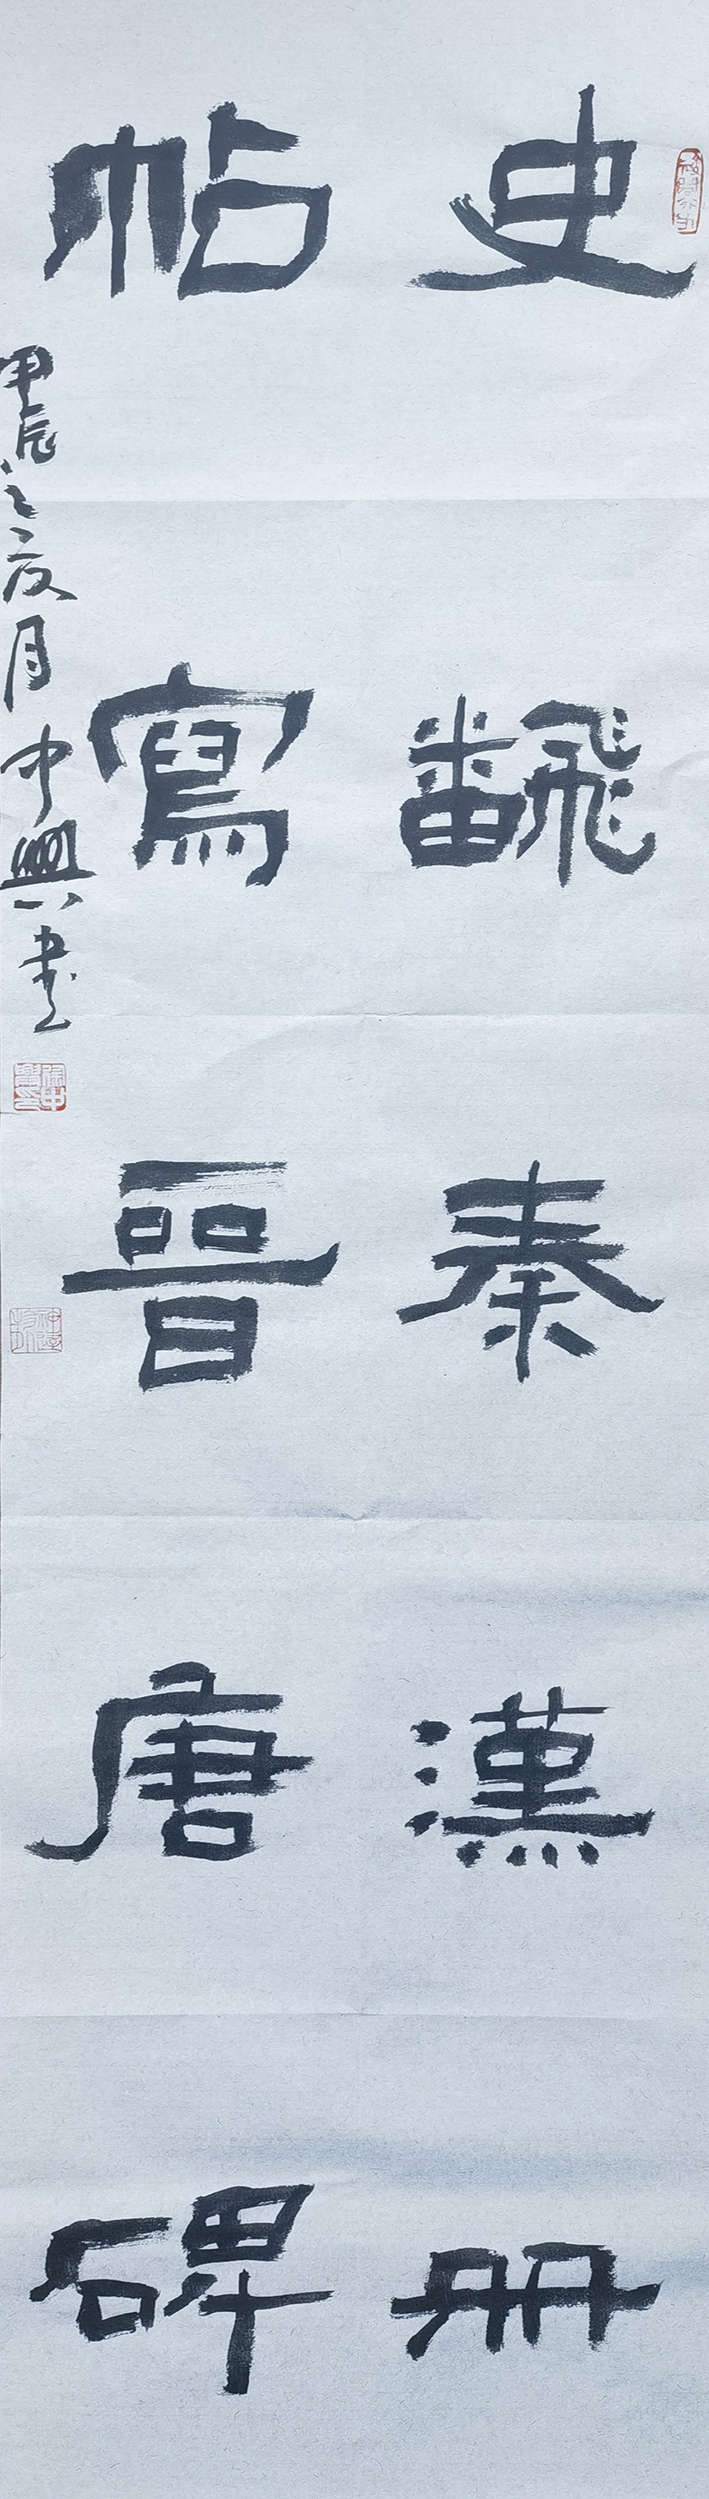 史翻秦漢册
帖寫晉唐碑
甲辰之夜月中興書